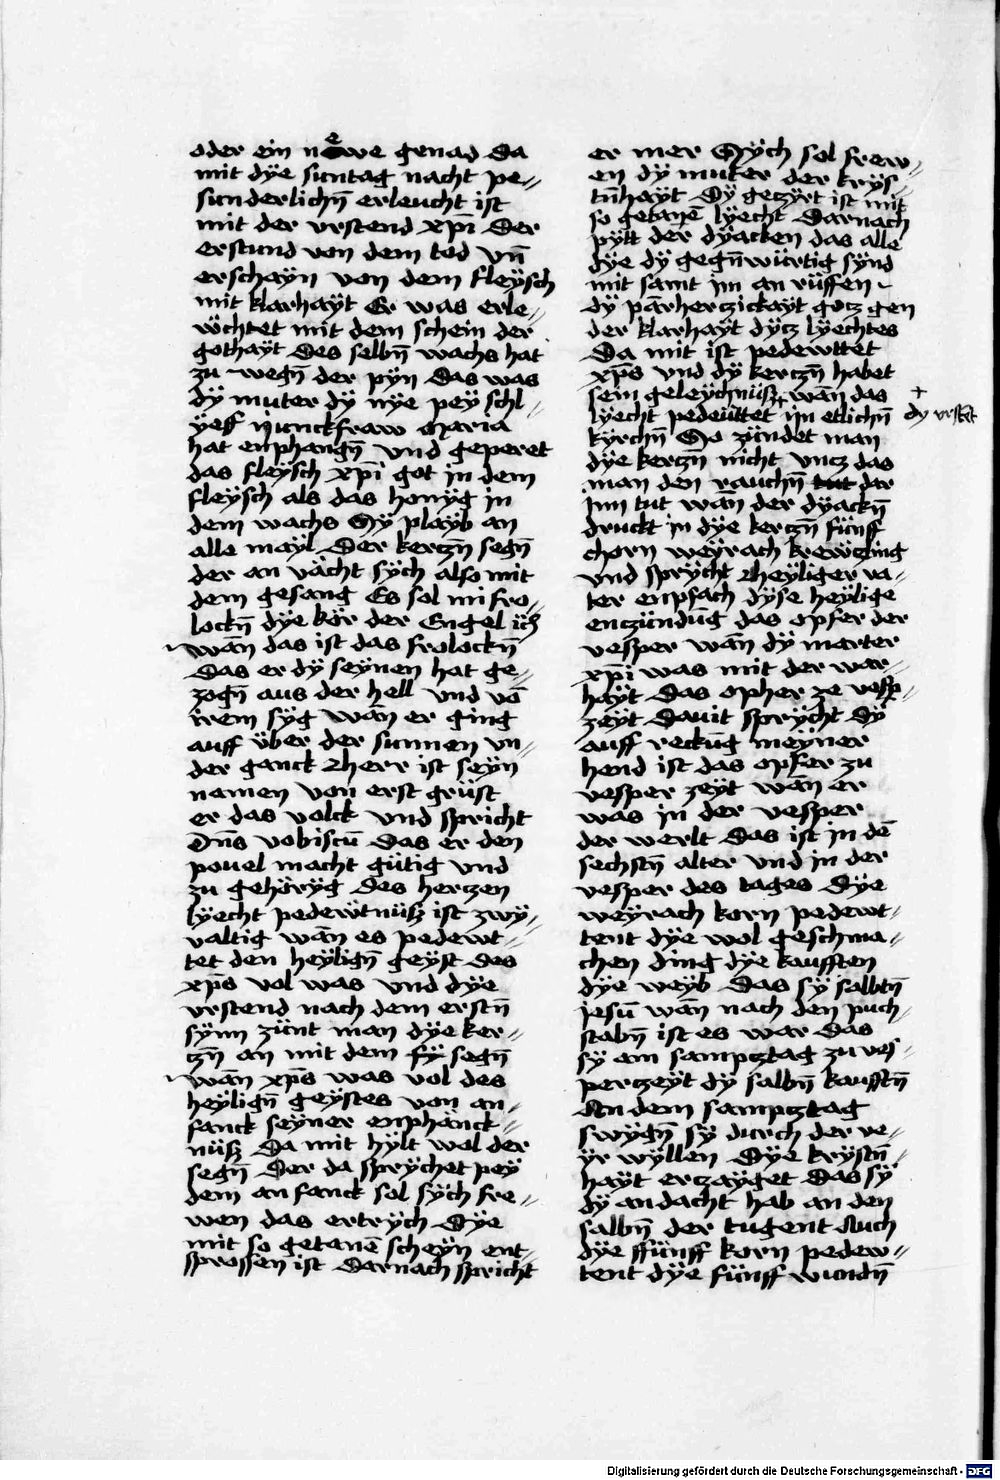 oder ein newe genad Da
mit dÿe suntag nacht pe//
sunderlichn̄ erleucht ist
mit der vrstend xp̄i Der
erstund von dem tod vn̄
erschayn von dem fleÿsch
mit klarhaÿt Er was erle//
wchtet mit dem schein der
gothaÿt Des selbn̄ wachs hat
zu wegn̄ der pÿn Das was
dÿ muter dÿ nÿe peÿ schl//
ÿeff Junckfraw Maria
hat enphangn̄ vnd geperet
das fleÿsch xp̄i got in dem
fleÿsch als das honÿg in
dem wachs Sÿ plaÿb an
alle mayl Der kerczn̄ segn̄
der an vächt sÿch also mit
dem gesang Es sol mi fro//
lockn̄ dÿe kör der Engel ich
wan̄ das ist das frolockn̄
Das er dÿ seÿnen hat ge//
zogn̄ aus der hell vnd võ
irem sÿg wan̄ er ging
auff über der sunnen vn//
der ganck 2herr ist seÿn
namen von erst grüst
er das volck vnd spricht
Dn̄s vobiscū Das er den
pouel macht gütig vnd
zu gehöryg Des hertzen
lÿecht pedewtnüß ist zwÿ//
valtig wan̄ es pedewt//
tet den heÿlign̄ geÿst des
xp̄s vol was vnd dÿe
vrstend nach dem erstn̄
sÿnn zünt man dÿe ker//
czn̄ an mit dem fÿ segn̄
wan̄ xp̄s was vol des
heÿlign̄ geÿstes von an//
fanck seyner enphänck//
nüß Da mit hÿlt wol der
segn̄ Der da sprÿchet peÿ
dem anfanck sol sÿch fre//
wen das ertrÿch Dÿe
mit so getanē scheÿn ent//
sprossen ist Darnach spricht
er mer Sÿch sol frew//
en dÿ muter der krÿs//
tn̄haÿt Dÿ geczÿrt ist mit
so getanē lÿecht Darnach
pÿtt der dÿacken das alle
dÿe dÿ gegn̄würtig sÿnd
mit samt im an rüffen
dÿ parherczickaÿt gotz gen
der klarhaÿt dÿcz lÿechtes
Da mit ist pedewttet
xp̄s vnd dÿ kerczn̄ habet
sein geleÿchnüß wan̄ das
lÿecht pedeüttet + im etlichn̄
+ dy vrstet
kÿrchn̄ So zündet man
dÿe kerczn̄ nicht vncz das
man den rauchn̄ tut dar
Inn tut wan̄ der dÿackn̄
druckt in dÿe kerczn̄ fünff
chorn weÿrach krewczling
vnd sprÿcht 2heÿliger va//
ter enpfach dÿse heÿlige
enczündūg das opfer der
vesper wan̄ dÿ marter
xp̄i was mit der war//
haÿt Das opher ze vesp//
zeÿt Dauit sprÿcht Dÿ
auff reckūg meÿner
hend ist das opfer zu
vesper zeÿt wan̄ er
was in der vesper
der werlt Das ist in dē
sechstn̄ alter vnd in der
vesper des tages Dÿe
weÿrach korn pedewt//
tent dÿe wol geschma//
chen ding dÿe kaufften
dÿe weÿb Das sÿ salbtn̄
Jesū wan̄ nach den puch//
stabn̄ ist es war Das
sÿ am sampcztag zu ves//
perczeÿt dÿ salbn̄ kaufftn̄
An dem sampcztag
swÿgn̄ sÿ durch der ve//
ÿr wÿllen Dÿe krÿstn̄//
haÿt erczaÿget Das sÿ
dÿ andacht hab an den
salbn̄ der tugent Auch
dÿe ffünff korn pedew//
tent dÿe fünff wundn̄
Digitalisierung gefördert durch die Deutsche Forschungsgemeinschaft - DFG